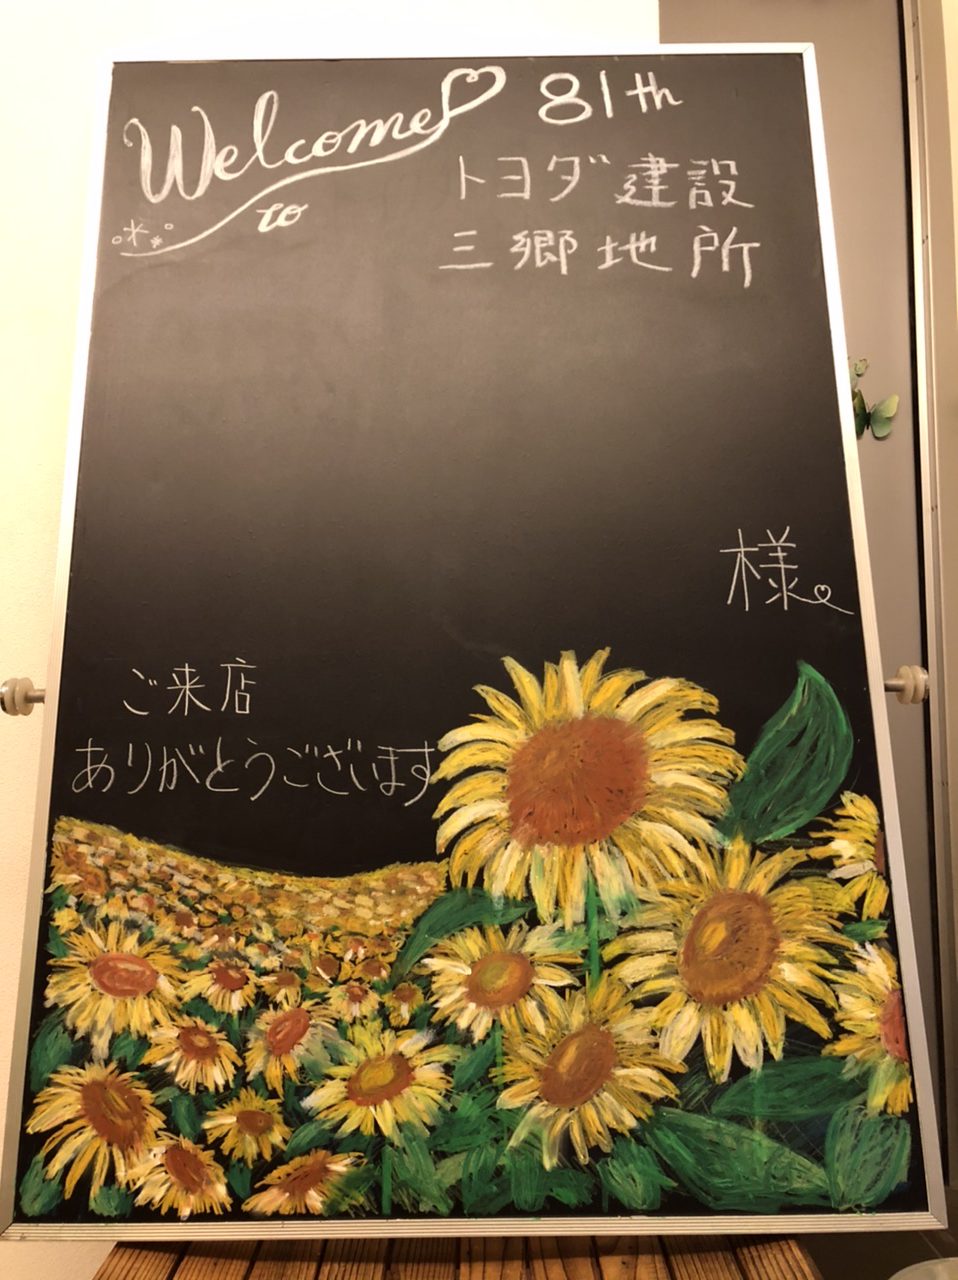 Welcome
to
81th
トヨダ建設
三郷地所
様
ご来店
ありがとうございます